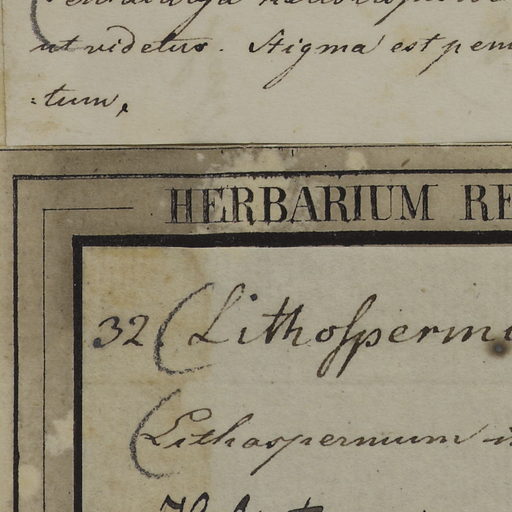 ut videtur. Stigma est pen
:tum,
HERBARIUM RE
32 (Lithospermu
(Lithospermum i